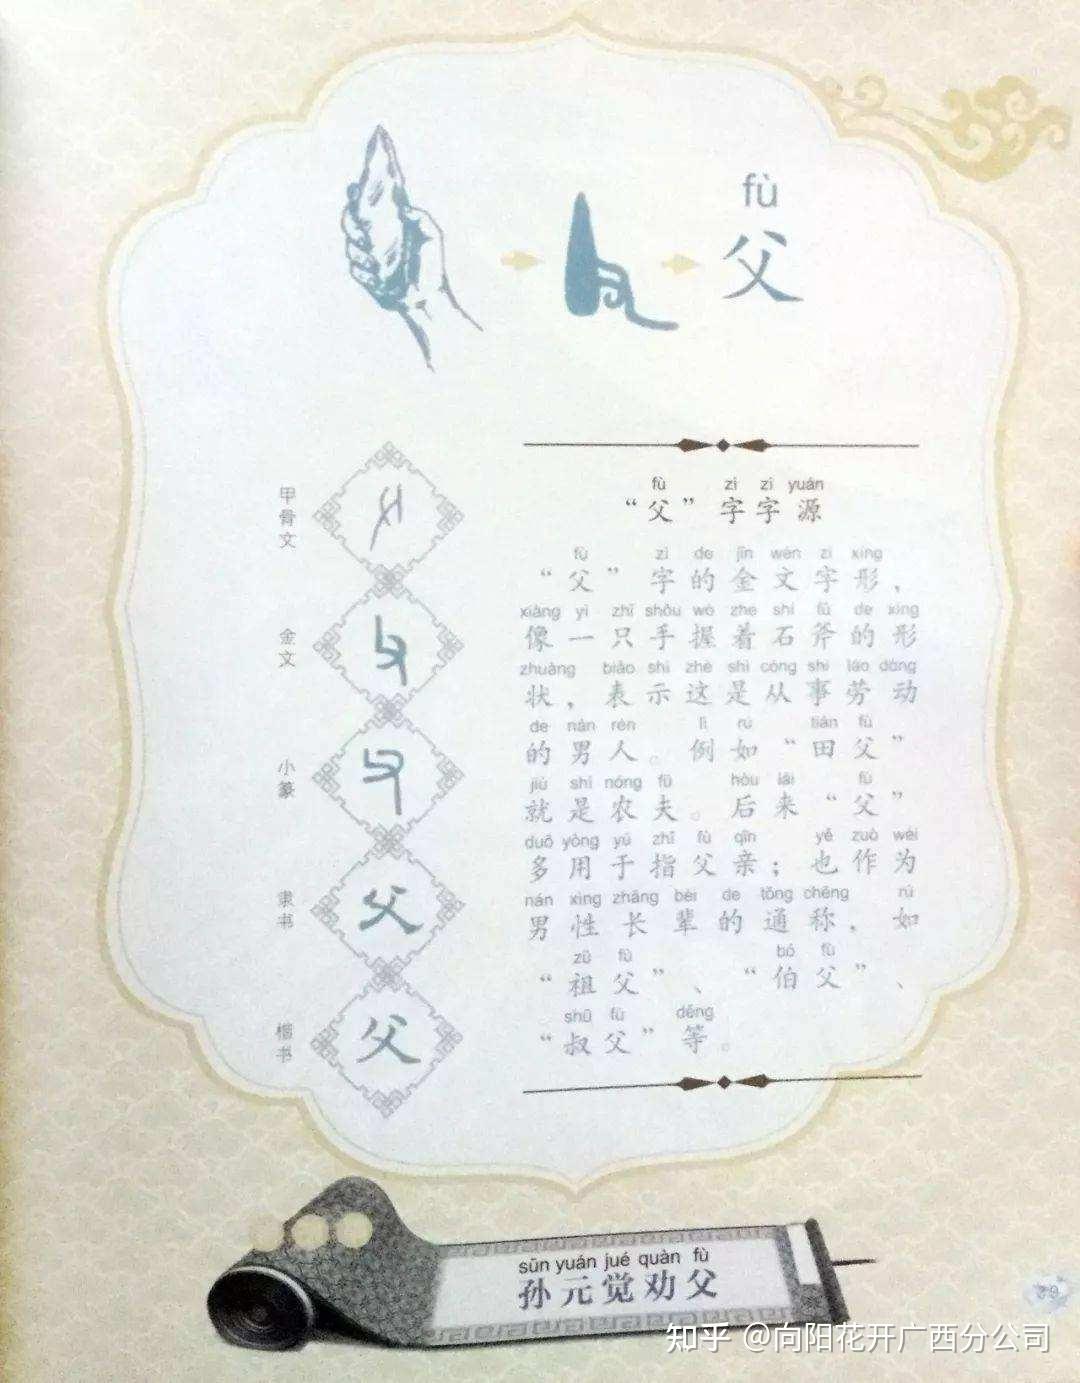 fù
父
甲骨文
金文
小篆
隶书
楷书
fù zì zì yuán
“父”字字源
fù zì de jīn wén zì xíng
“父”字的金文字形，
xiàng yì zhī shǒu wò zhe shí fǔ de xíng
像一只手握着石斧的形
zhuàng biǎo shì zhè shì cóng shì láo dòng
状，表示这是从事劳动
de nán rén lì rú tián fù
的男人。例如“田父”
jiù shì nóng fū hòu lái fù
就是农夫。后来“父”
duō yòng yú zhǐ fù qīn yě zuò wéi
多用于指父亲；也作为
nán xìng zhǎng bèi de tōng chēng rú
男性长辈的通称，如
zǔ fù bó fù
“祖父”、“伯父”、
shū fù děng
“叔父”等。
sūn yuán jué quàn fù
孙元觉劝父
知乎 @向阳花开广西分公司